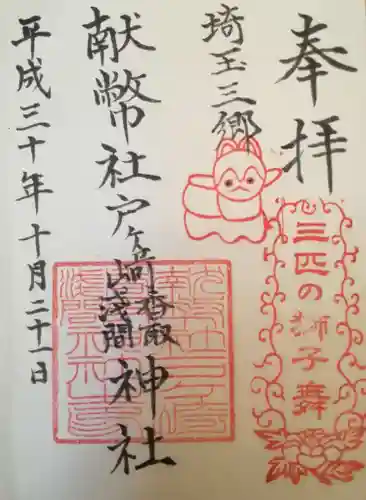 奉拝
三匹の獅子舞
埼玉三郷
献幣社戸ヶ崎香取浅間神社
平成三十年十月二十一日